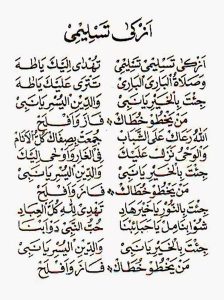 ازكى تسليمي
ازكى تسليمي تسليمي تهدى اليك يا طه
وصلاة البارى البارى تترى عليك يا طه
جئت بالخير يا نبي والدين اليسر يا نبي
من يخطو خطاك فاز وافلح
الله رعاك على الشباب جمعت بصفاك كل الآدام
والوحي نزل عليك في الغار وأوحى اليك
جئت بالخير يا نبي والدين اليسر يا نبي
من يخطو خطاك فاز وافلح
جئت بالنور يا خير هاد تهدى لله كل العباد
شوا بنا مل يا حبا ئبنا حب النبي دوابنا
جئت بالخير يا نبي والدين اليسر يا نبي
من يخطو خطاك فاز وافلح